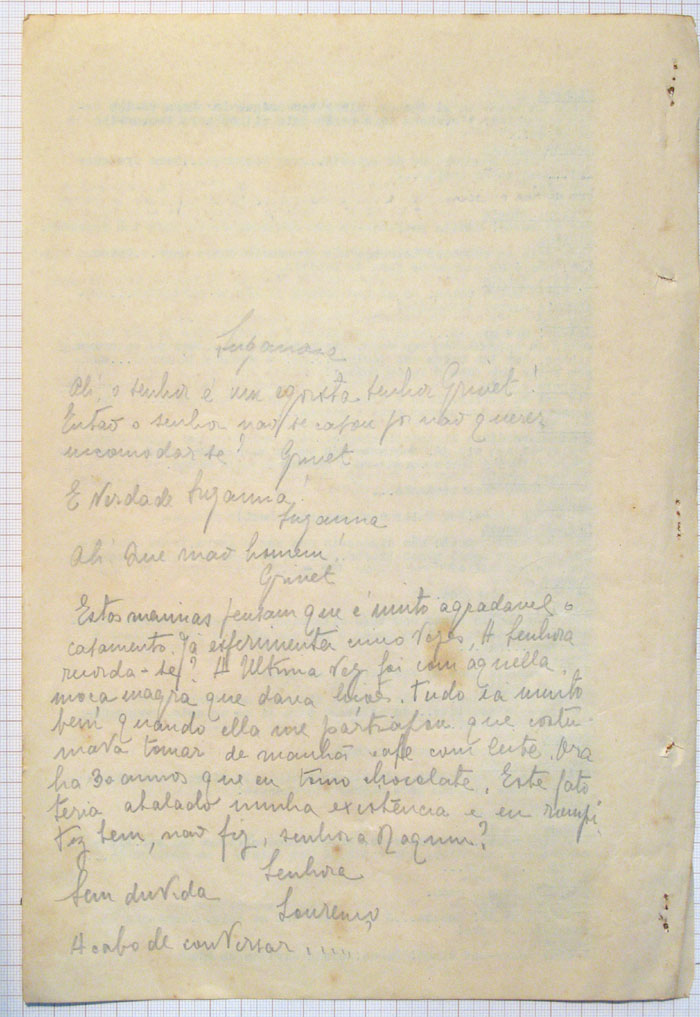 Suzanna
Ah! o senhor é um egoista senhor Grivet!
Então o senhor não se casou por não querer
incomodar-se! Grivet
E Verdade Suzanna!
Suzanna
Ah! Que mao homem!
Grivet
Estas meninas pensam que é muito agradavel o
casamento. Já esferimentei cinco Vezes, A Senhora
recorda-se? A Ultima Vez foi com aquella
moça magra que dava licões. Tudo ia muito
bem quando ella me participou que costu-
mava tomar de manhã café com leite. Ora
ha 30 annos que eu tomo chocolate. Este fato
teria abalado minha existência e eu rompi.
Fez bem, não fiz, senhora Raquin?
Senhora
Sem duvida
Lourenço
Acabo de conVersar .....